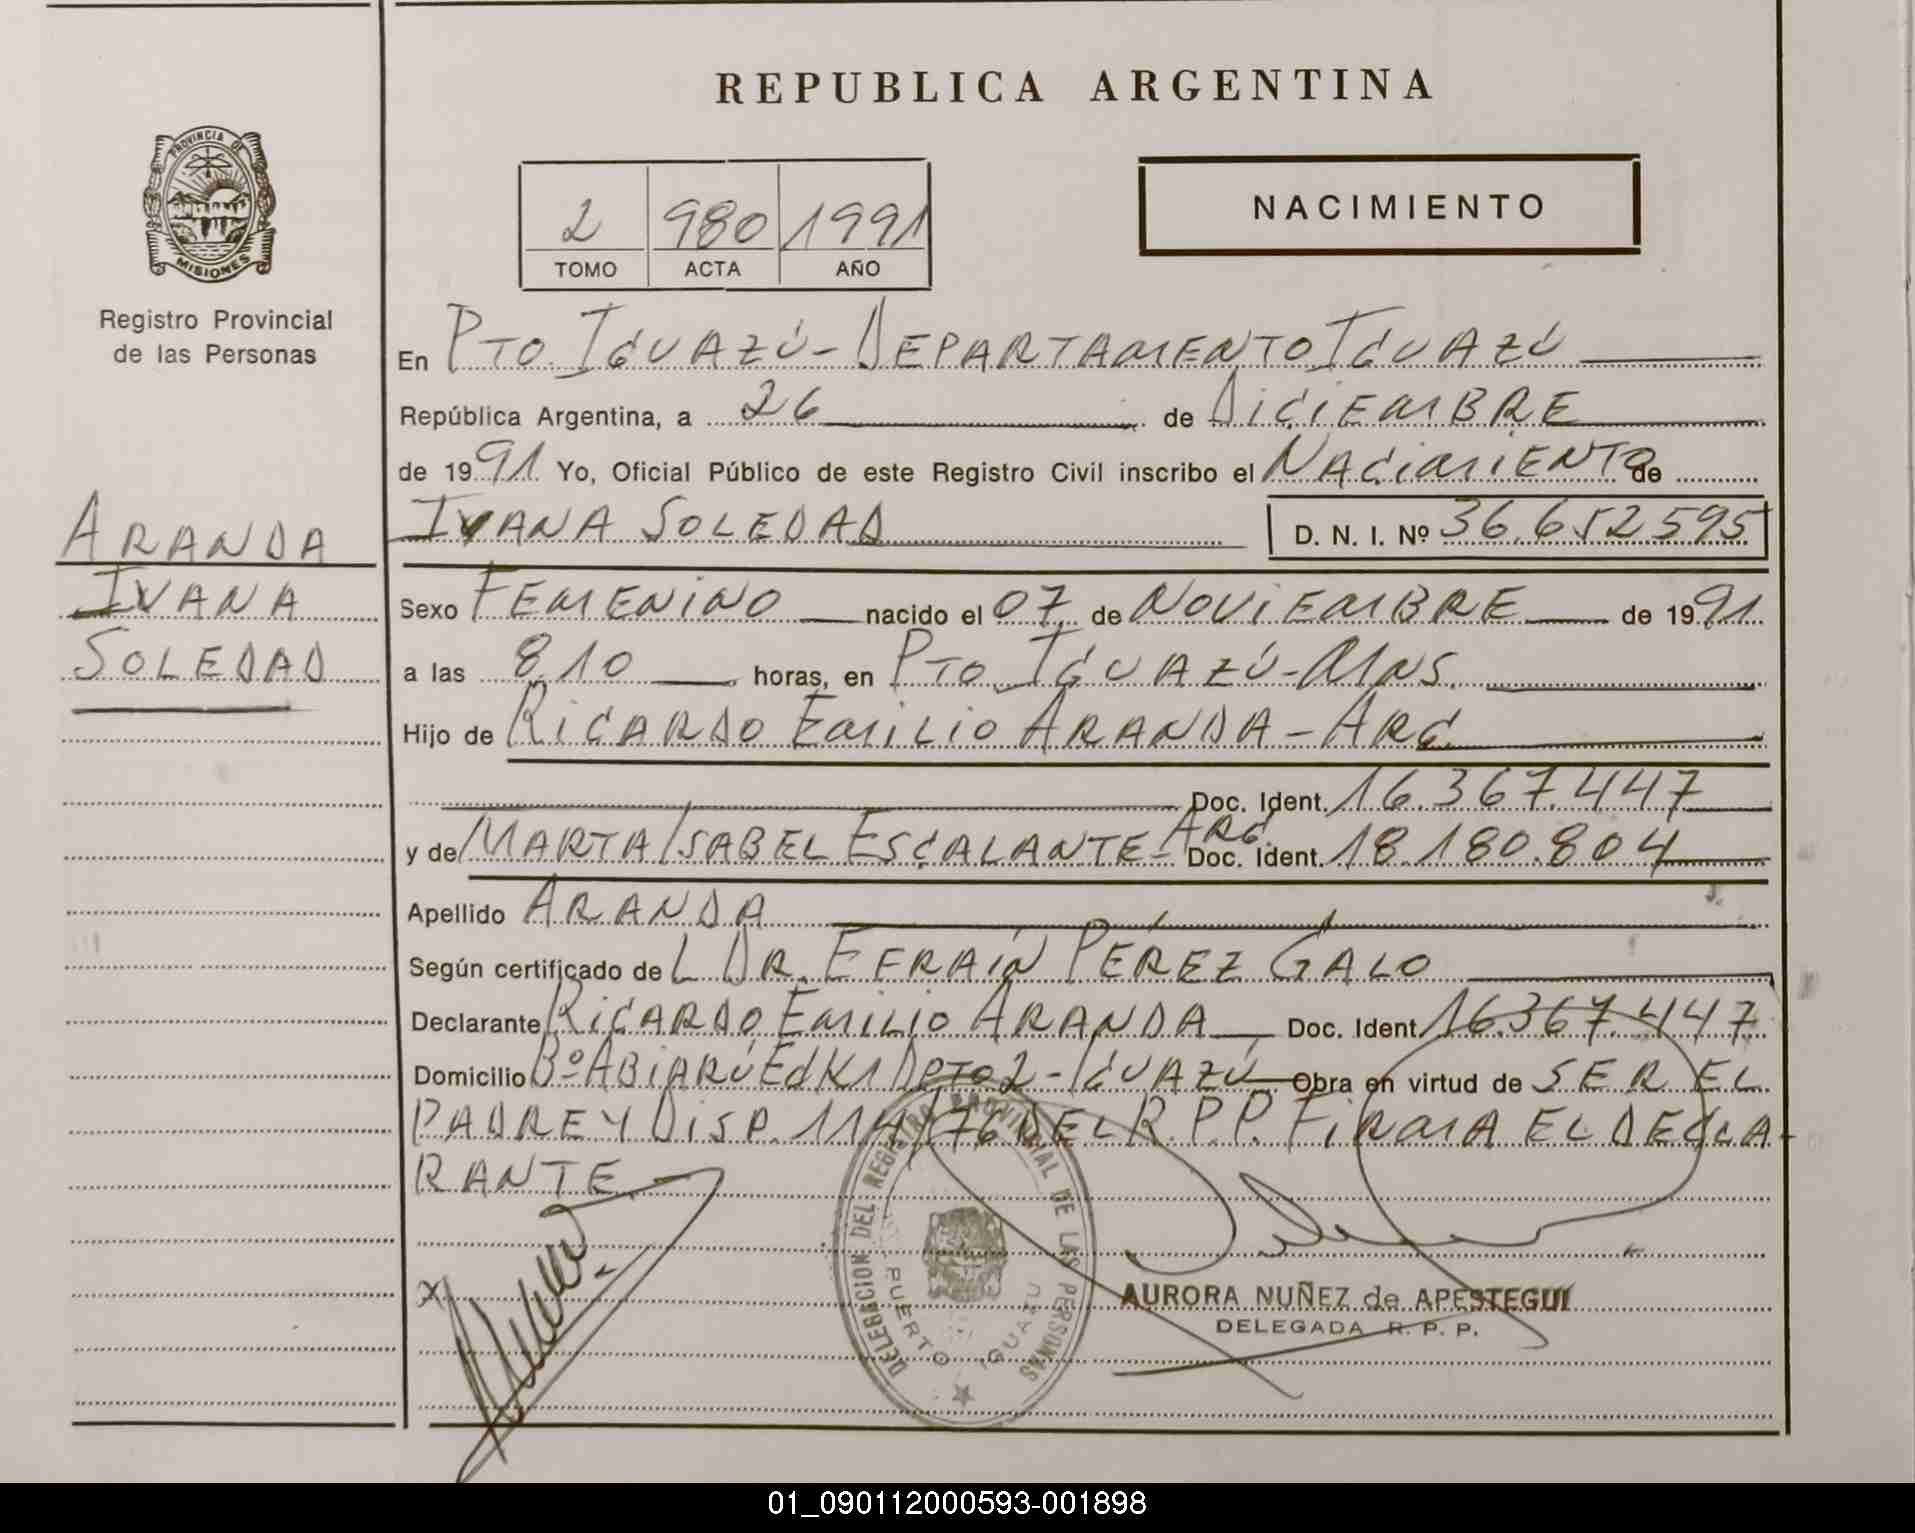 REPUBLICA ARGENTINA
PROVINCIA DE
MISIONES
Registro Provincial
de las Personas
2 980 1991
TOMO ACTA AÑO
NACIMIENTO
En PTO. IGUAZÚ - DEPARTAMENTO IGUAZÚ
República Argentina, a 26 de DICIEMBRE
de 1991 Yo, Oficial Público de este Registro Civil inscribo el NACIMIENTO de
IVANA SOLEDAD D. N. I. Nº 36.652595
ARANDA
IVANA
SOLEDAD
Sexo FEMENINO nacido el 07 de NOVIEMBRE de 1991
a las 8.10 horas, en PTO. IGUAZÚ - MNS.
Hijo de RICARDO EMILIO ARANDA - ARG.
Doc. Ident. 16.367.447
y de MARTA ISABEL ESCALANTE - ARG. Doc. Ident. 18.180.804
Apellido ARANDA
Según certificado de L DR. EFRAÍN PÉREZ GALO
Declarante RICARDO EMILIO ARANDA Doc. Ident. 16.367.447
Domicilio Bº ABIARÚ Ed K1 DPTO 2 - IGUAZÚ Obra en virtud de SER EL
PADRE Y DISP. 114/76 DEL R.P.P. FIRMA EL DECLA-
RANTE.
DELEGACION DEL REGISTRO PROVINCIAL DE LAS PERSONAS
PUERTO IGUAZU
X
AURORA NUÑEZ de APESTEGUI
DELEGADA R. P. P.
01_090112000593-001898